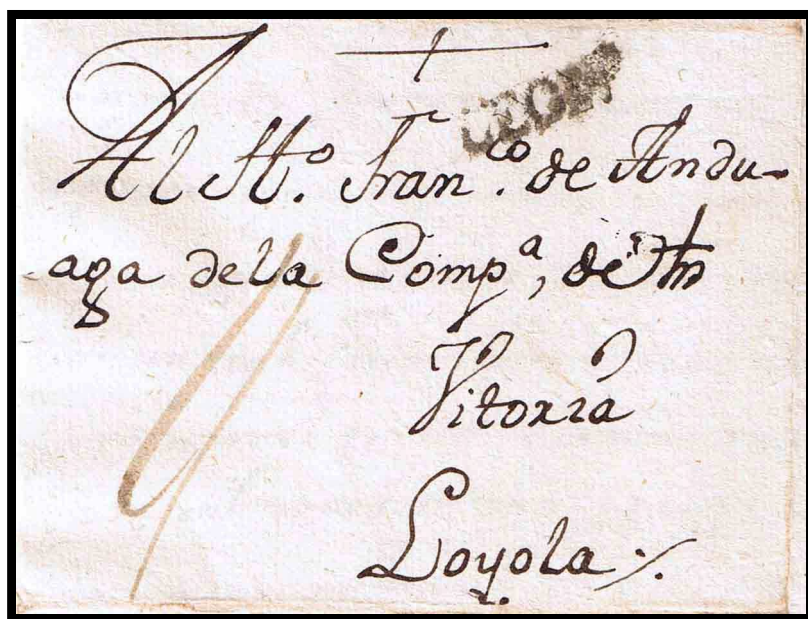 LEON
Al H.º Fran.co de Andu-
aga de la Comp.a, de
Vitoria
Loyola